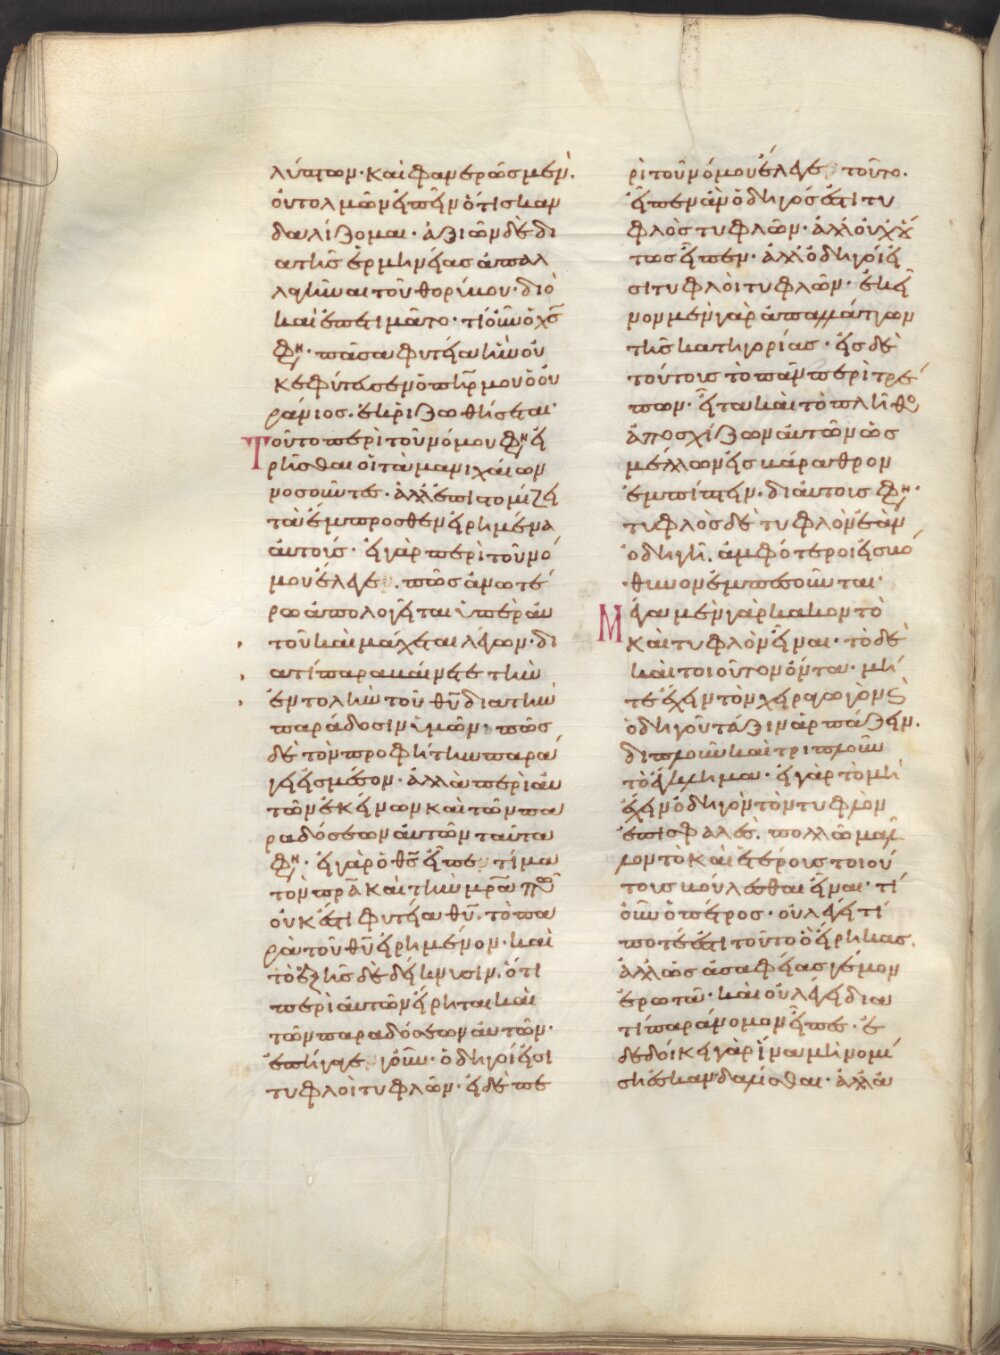 λύπτων· καὶ φανερῶς μὲν.
οὐ τολμῶν εἰπεῖν ὅτι σκαν
δαλίζομαι· ἀξιῶν δὲ δι
ὰ τῆς ἑρμηνείας ἀπαλ
λαγῆναι τοῦ θορύβου· διὸ
καὶ ἐπετιμᾶτο· τί οὖν ὁ χς
φη· πᾶσα φυτεία ἣν οὐ
κ ἐφύτευσεν ὁ πηρ μου ὁ οὐ
ράνιος. ἐκριζωθήσεται·
Τοῦτο περὶ τοῦ νόμου φη εἰ
ρῆσθαι οἱ τὰ μανιχαίων
νοσοῦντες· ἀλλ ἐπιστομίζει
τὰ ἔμπροσθεν εἰρημένα
αὐτούς· εἰ γὰρ περὶ τοῦ νό
μου ἔλεγε. πῶς ἀνωτέ
ρω ἀπολογεῖται ὑπὲρ αὐ
τοῦ καὶ μάχεται λέγων· δι
ατί παραβαίνετε τὴν
ἐντολὴν τοῦ θυ διὰ τὴν
παράδοσιν ὑμῶν· πῶς
δὲ τὸν προφήτην παρά
γει εἰς μέσον· ἀλλὰ περὶ αὐ
τῶν ἐκείνων καὶ τῶν πα
ραδόσεων αὐτῶν ταῦτα
φη· εἰ γὰρ ὁ θς εἶπε τίμα
τὸν πρα καὶ τὴν μρα πῶς
οὐκέτι φυτεία θυ. τὸ πα
ρὰ τοῦ θυ εἰρημένον· καὶ
τὸ ἑξῆς δὲ δείκνυσιν. ὅτι
περὶ αὐτῶν εἴρηται καὶ
τῶν παραδόσεων αὐτῶν·
ἐπήγαγε γοῦν· ὁδηγοί εἰσι
τυφλοὶ τυφλῶν· εἰ δὲ πε
ρὶ τοῦ νόμου ἔλεγε τοῦτο.
εἶπεν ἂν ὁδηγός ἐστι τυ
φλὸς τυφλῶν· ἀλλ οὐχ οὕ
τως εἶπεν· ἀλλ ὁδηγοί εἰ
σι τυφλοὶ τυφλῶν· ἐκεῖ
νον μὲν γὰρ ἀπαλλάττων
τῆς κατηγορίας· εἰς δὲ
τούτους τὸ πᾶν περιτρέ
πων· εἶτα καὶ τὸ πλῆθος
ἀποσχίζων αὐτῶν ὡς
μέλλων εἰς βάραθρον
ἐμπίπτειν· διὰ αὐτοὺς φη·
τυφλὸς δὲ τυφλὸν ἐὰν
ὁδηγῆ. ἀμφότεροι εἰς βό
θυνον ἐμπεσοῦνται·
Μέγα μὲν γὰρ κακὸν τὸ
καὶ τυφλὸν εἶναι· τὸ δὲ
καὶ τοιοῦτον ὄντα· μή
τε ἔχειν τὸν χειραγωγὸν καὶ
ὁδηγοῦ τάξιν ἁρπάζειν.
διπλοῦν καὶ τριπλοῦν
τὸ ἔγκλημα· εἰ γὰρ τὸ μὴ
ἔχειν ὁδηγὸν τὸν τυφλὸν
ἐπισφαλές. πολλῶ μᾶλ
λον τὸ καὶ ἑτέροις τοιού
τοις βούλεσθαι εἶναι· τί
οὖν ὁ πέτρος· οὐ λέγει τί
ποτέ ἐστι τοῦτο ὃ εἴρηκας.
ἀλλ ὡς ἀσαφείας γέμον
ἐρωτᾶ· καὶ οὐ λέγει δια
τί παράνομον εἶπες· ἐ
δεδοίκει γὰρ ἵνα μὴ νομι
σθῆ ἐσκανδαλίσθαι· ἀλλὰ